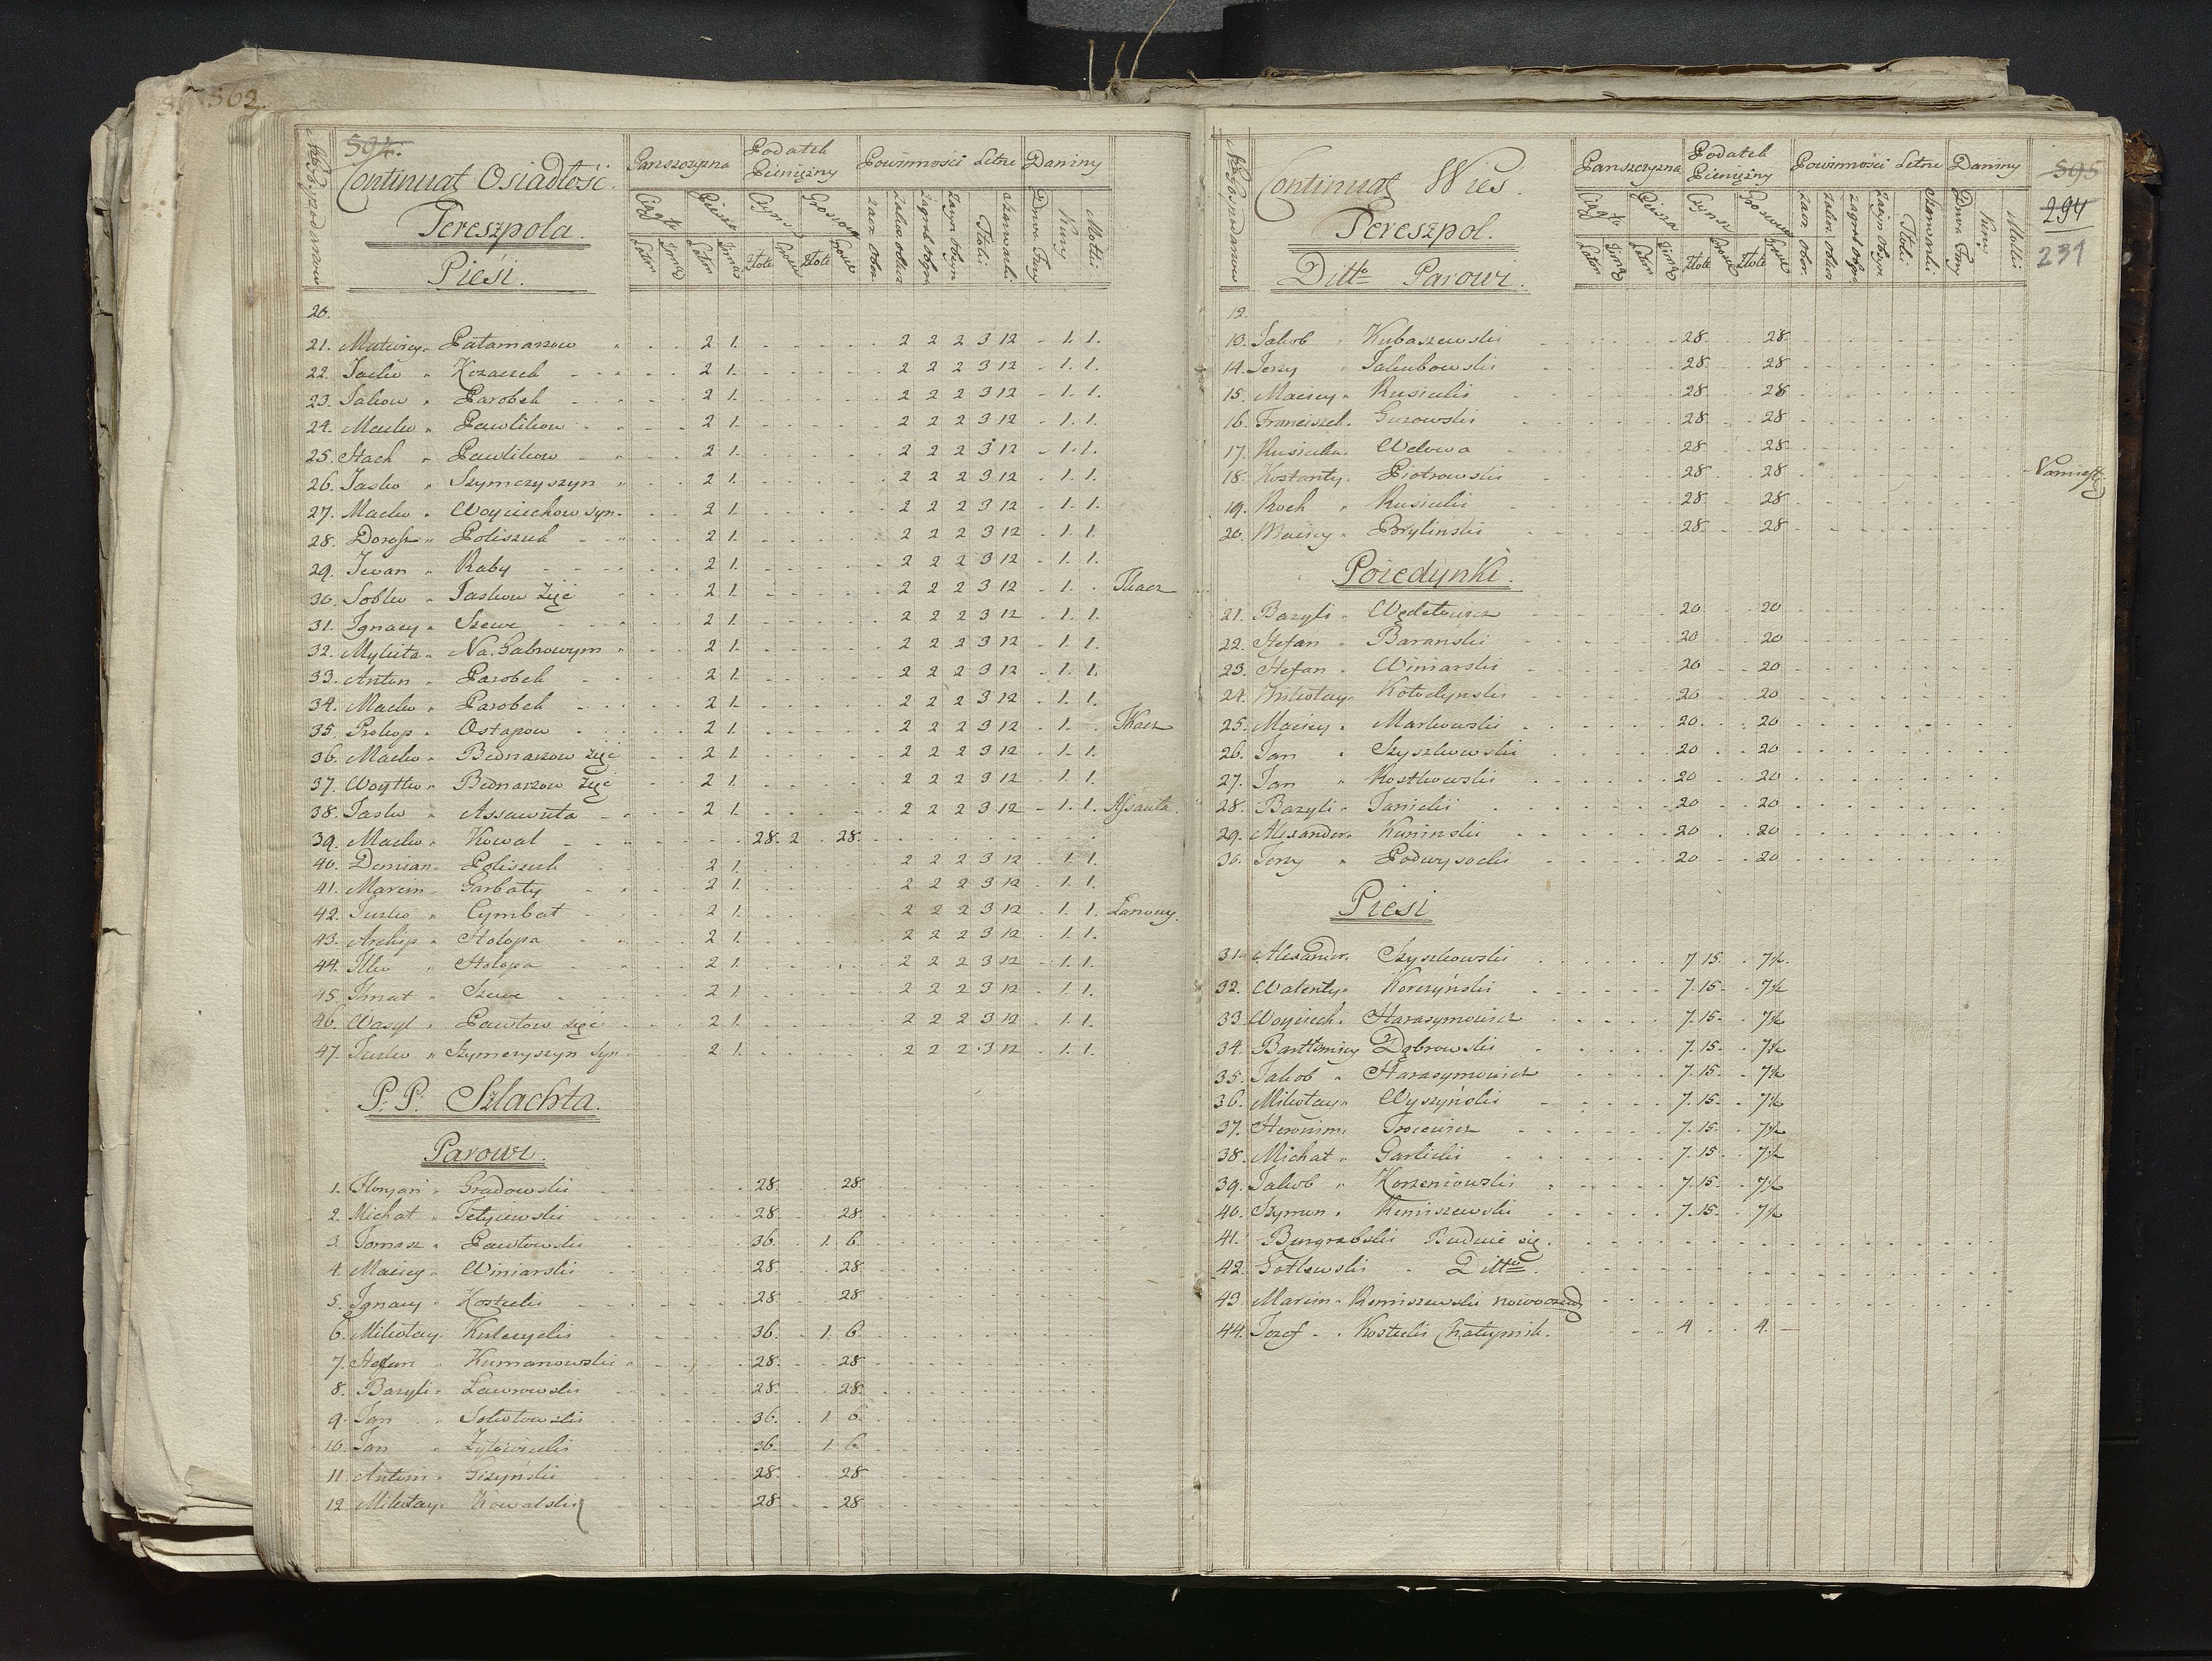 562.
594.
Continuat Osiadłość
Tereszpola.
Piesi.
Panszczyzna Podatek Pieniężny Powinności Letne Daniny
20.
21. Matwiey Patamarzow 2 1. 2 2 2 3 12 1. 1.
22. Jacko Kozaczek 2 1. 2 2 2 3 12 1. 1.
23. Jakow Parobek 2 1. 2 2 2 3 12 1. 1.
24. Macko Pawlikow 2 1. 2 2 2 3 12 1. 1.
25. Stach Pawlikow 2 1. 2 2 2 3 12 1. 1.
26. Jasko Szymczyszyn 2 1. 2 2 2 3 12 1. 1.
27. Macko Woyciechow Syn 2 1. 2 2 2 3 12 1. 1.
28. Dorosz Poliszuk 2 1. 2 2 2 3 12 1. 1.
29. Iwan Raby 2 1. 2 2 2 3 12 1. 1.
30. Sobko Jaskow Zięć 2 1. 2 2 2 3 12 1. Tkacz
31. Ignacy Szewc 2 1. 2 2 2 3 12 1. 1.
32. Mykita Na Gabrowym 2 1. 2 2 2 3 12 1. 1.
33. Anton Parobek 2 1. 2 2 2 3 12 1. 1.
34. Macko Parobek 2 1. 2 2 2 3 12 1. 1.
35. Prokop Ostapow 2 1. 2 2 2 3 12 1. Tkacz
36. Macko Bednarzow zięć 2 1. 2 2 2 3 12 1. 1.
37. Woytko Bednarzow zięć 2 1. 2 2 2 3 12 1. 1.
38. Jasko Assawuła 2 1. 2 2 2 3 12 1. 1. Assauła.
39. Macko Kowal 28. 2 28.
40. Demian Poliszuk 2 1. 2 2 2 3 12 1. 1.
41. Marcin Garbaty 2 1. 2 2 2 3 12 1. 1.
42. Jusko Cymbał 2 1. 2 2 2 3 12 1. 1. Lanowy.
43. Archip Holopa 2 1. 2 2 2 3 12 1. 1.
44. Ilko Holopa 2 1. 2 2 2 3 12 1. 1.
45. Ihnat Szewc 2 1. 2 2 2 3 12 1. 1.
46. Wasyl Pawłow zięć 2 1. 2 2 2 3 12 1. 1.
47. Jusko Szymczyszyn Syn 2 1. 2 2 2 3 12 1. 1.
P. P. Szlachta.
Parowi.
1. Floryan Gradowski 28. 28.
2. Michał Tetyiewski 28. 28.
3. Tomasz Pawłowski 36. 1. 6.
4. Maciey Winiarski 28. 28.
5. Ignacy Kostecki 28. 28.
6. Mikołay Kulczycki 36. 1. 6
7. Stefan Kumanowski 28. 28.
8. Bazyli Ławrowski 28. 28.
9. Jan Sokołowski 36. 1 6.
10. Jan Zytowiecki 36. 1 6.
11. Antoni Gizyński 28. 28
12. Mikołay Kowalski 28. 28
595
294
231
Continuat Wieś.
Tereszpol.
Ditto Parowi.
Panszczyzna Podatek Pieniężny Powinności Letne Daniny
12.
13. Jakob Kubaszewski 28. 28
14. Jerzy Jakubowski 28. 28
15. Maciey Rusiecki 28. 28
16. Franciszek Gurowski 28. 28
17. Rusiecka Wdowa 28 28.
18. Kostanty Piotrowski 28. 28 Namiest
19. Roch Rusiecki 28. 28.
20. Maciey Brylinski 28. 28.
Poiedynki.
21. Bazyli 20 20
22. Stefan Barański 20 20
23. Stefan Winiarski 20 20
24. Mikołay Kołodynski 20 20
25. Maciey Markowski 20. 20
26. Jan Szyszkowski 20 20
27. Jan Kostkowski 20. 20
28. Bazyli Janicki 20. 20
29. Alexander Kuninski 20. 20
30. Jerzy Podwysocki 20 20
Piesi
31. Alexander Szyszkowski 7 15. 7½.
32. Walenty Korczyński 7. 15. 7½
33. Woyciech Harasymowicz 7. 15. 7½
34. Bartłomiey Dąbrowski 7. 15. 7½
35. Jakob Harasymowicz 7. 15. 7½
36. Mikołay Wyszyński 7. 15. 7½
37. Heronim Trocewicz 7. 15. 7½
38. Michał Garlicki 7. 15 7½
39. Jakob Korzeniowski 7. 15. 7½
40. Szymon Remiszewski 7. 15. 7½
41. Burgrabski Buduie się.
42. Gotlewski Ditto.
43. Marcin Remiszewski
44. Jozef Kostecki Chałupnik. 4 4.